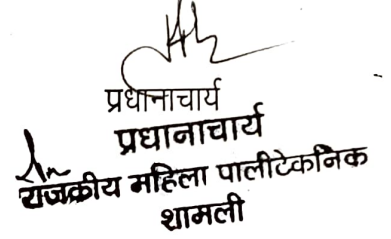 प्रधानाचार्य
प्रधानाचार्य
राजकीय महिला पालीटेकनिक
शामली